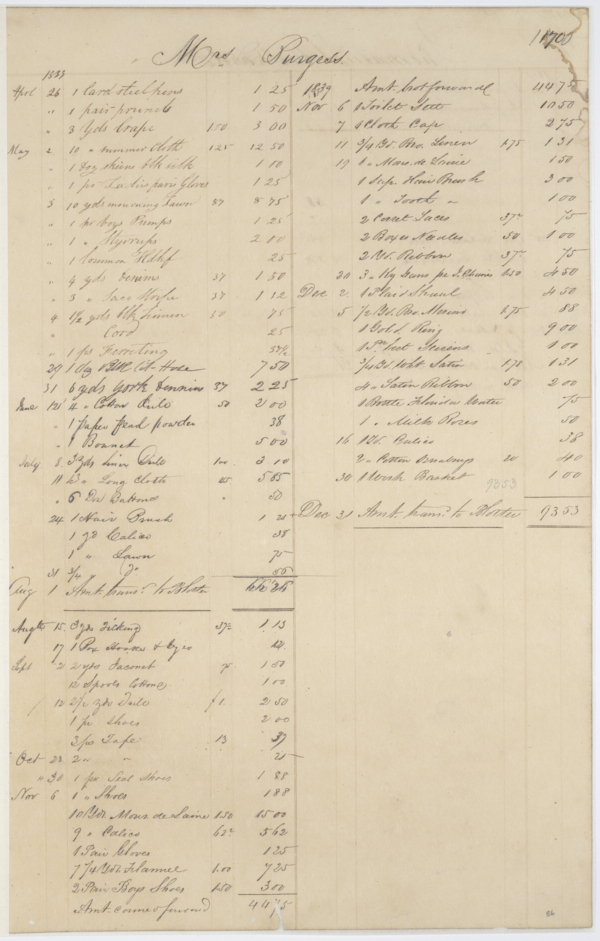 Mrs Burgess
1838
April 26 1 Card steel pens 1 25
" 1 pair pounds 1 50
" 3 yds Crape 1 00 3 00
May 2 10 " summer Cloth 125 12 50
" 1 Doz skeins blk silk 1 10
" 1 pr Ladies paris Gloves 1 25
3 10 yds mourning Lawn 87 8 75
" 1 pr boys Pumps 1 25
" 1 " Stirrups 2 00
" 1 Common Hdkf 25
" 4 yds Denim 37 1 50
" 3 " 37 1 12
4 1 1/2 yds blk Linen 50 75
" Cord 25
" 1 ps Frosting 37 1/2
29 1 Dz Blk Cot Hose 7 50
31 6 yds York Denim 37 2 25
June 12 4 " Cotton Drile 50 2 00
" 1 paper powder 38
" 1 Bonnet 5 00
July 8 3 yds Linen Drile 100 3 10
11 " Long Cloth 5 55
" 6 Doz Buttons " 50
24 1 Hair Brush 1 25
1 yd Calico 38
1 " Lawn 75
31 3/4 " Do 56
Aug 1 Amt trans. to Blotter 66 26
Augt 15 3 yds Ticking 37 1/2 1 13
17 1 Box Hooks & Eyes
Sept 2 2 yds Jaconet 1 50
12 Spools Cottons 1 00
12 2 1/2 yds Drile 1. 2 50
1 pr Shoes 2 00
3 ps Tape 13 39
Oct 23 2 " " 25
" 30 1 pr Seal Shoes 1 88
Nov 6 1 " Shoes 1 88
10 Yds Mous de Laine 150 15 00
9 " Calico 62 1/2 5 62
1 Pair Gloves 1 25
7 1/4 Yds Flannel 1.00 7 25
2 Pair Boys Shoes 150 3 00
Amt carried forward 44 75
1839 Amt brot forward 44 75
Nov 6 1 Toilet Sett 10 50
7 1 Cloth Cap 2 75
11 3/4 Yd. Bro. Linen 175 1 31
19 1 " Mous. de Laine 1 50
1 Sup. Hair Brush 3 00
1 " Tooth " 1 00
2 Corset Laces 37 1/2 75
2 Boxes Needles 50 1 00
2 Yds. Ribbon 37 1/2 75
20 3 " Ky Jeans pr 150 4 50
Dec 2 1 Plaid Shawl 4 50
5 1/2 Yd. Bro. Merino 175 88
1 Gold Ring 9 00
1 Scissors 1 00
3/4 Yd. Wht Satin 175 1 31
4 " Satin Ribbon 50 2 00
1 Bottle Florida Water 75
1 " Milk Roses 50
16 1 Yd. Calico 38
2 " Cotton 20 40
30 1 Work Basket 1 00
9353
Dec 31 Amt. trans. to Blotter 93 53
86